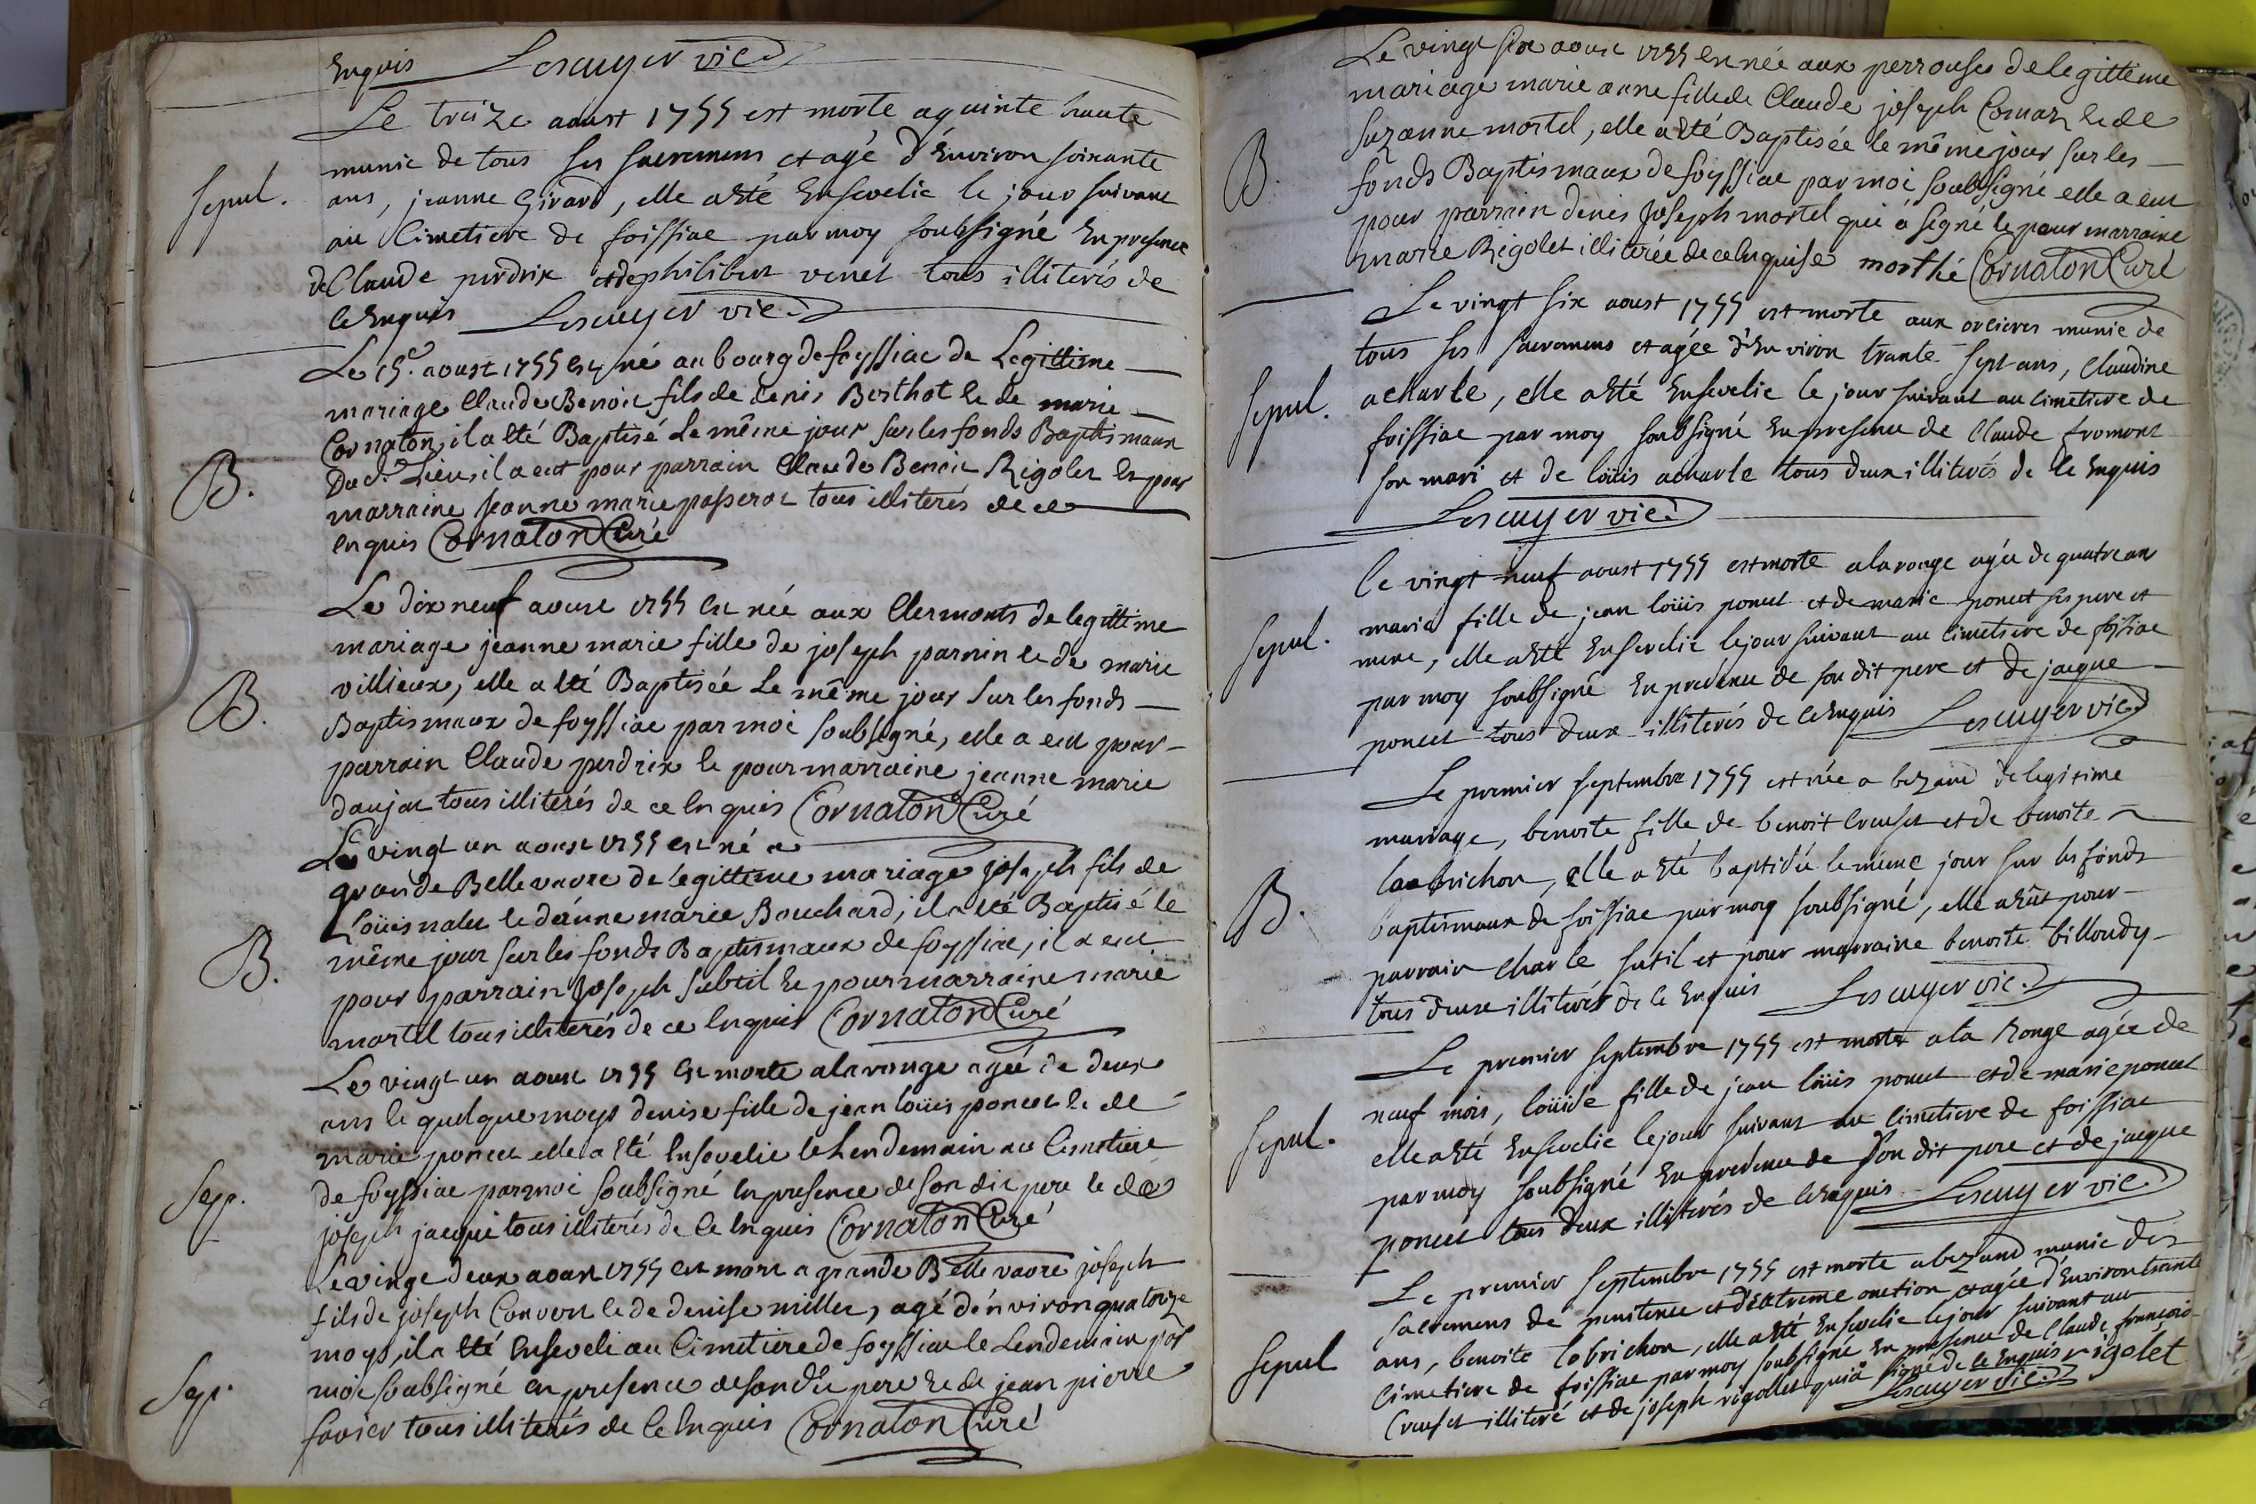 Enquis Lescuyer vic.
Le treize aoust 1755 est morte a quinte haute
sepul. munie de tous ses sacremens et agé d'Environ soixante
ans, jeanne Girard, elle a été Ensevelie le jour suivant
au Cimetiere de foissiac par moy soubsigné En presence
de Claude perdrix et de philibert venet tous illiterés de
ce Enquis Lescuyer vic.
Le 15e. aoust 1755 est né au bourg de foyssiac de Legittime
mariage Claude Benoit fils de denis Berthot et de marie
Cornaton, il a été Baptisé Le même jour sur les fonds Baptismaux
B. Dud. Lieu, il a eut pour parrain Claude Benoit Rigolet et pour
marraine jeanne marie passerat tous illiterés de ce
enquis Cornaton Curé
Le dix neuf aoust 1755 est née aux Clermonts de legittime
mariage jeanne marie fille de joseph parnin et de marie
B. villieux, elle a été Baptisée Le même jour sur les fonds
Baptismaux de foyssiac par moi soubsigné, elle a eut pour
parrain Claude perdrix et pour marraine jeanne marie
daujat tous illiterés de ce enquis Cornaton Curé
Le vingt un aoust 1755 est né a
grande Bellevavre de légittime mariage joseph fils de
Loüis nalet et d'anne marie Bouchard, il a été Baptisé le
B. même jour sur les fonds Baptismaux de foyssiac, il a eut
pour parrain joseph subtil et pour marraine marie
martel tous illiterés de ce enquis Cornaton Curé
Le vingt un aoust 1755 est morte a la ronge agée de deux
ans et quelque moys denise fille de jean loüis poncet et de
marie poncet elle a été ensevelie le Lendemain au Cimetiere
Sep. de foyssiac par moi soubsigné en presence de son dit pere et de
joseph jacque tous illiterés de ce enquis Cornaton Curé
Le vingt deux aoust 1755 est mort a grande Bellevavre joseph
fils de joseph Convert et de denise millet, agé d'environ quatorze
moys, il a été enseveli au Cimetiere de foyssiac le Lendemain par
Sep. moi soubsigné en presence de son dit pere et de jean pierre
favier tous illiterés de ce enquis Cornaton Curé
Le vingt six aoust 1755 est née aux perrouses de legittime
mariage marie anne fille de Claude joseph Comas et de
suzanne mortel, elle a été Baptisée le même jour sur les
B. fonds Baptismaux de foyssiac par moi soubsigné elle a eut
pour parrain denis joseph mortel qui a signé et pour marraine
marie Rigolet illiterée de ce enquise Cornaton Curé
Le vingt six aoust 1755 est morte aux orcieres munie de
tous ses sacremens et agée d'Environ trante sept ans, Claudine
sepul. acharle, elle a été Ensevelie le jour suivant au cimetiere de
foissiac par moy soubsigné En presence de Claude fromont
son mari et de loüis acharle tous deux illiterés de ce Enquis
Lescuyer vic.
le vingt neuf aoust 1755 est morte a la ronge agée de quatre ans
sepul. marie fille de jean loüis poncet et de marie poncet ses pere et
mere, elle a été Ensevelie le jour suivant au cimetiere de foissiac
par moy soubsigné En presence de son dit pere et de jacque
poncet tous deux illiterés de ce Enquis Lescuyer vic.
Le premier septembre 1755 est née a bezand de legitime
mariage, benoite fille de benoit Creuset et de benoite
labrichon, elle a été baptisée le même jour sur les fonds
B. baptismaux de foissiac par moy soubsigné, elle a Eût pour
parrain charle sutil et pour marraine benoite billoudy
tous deux illiterés de ce Enquis Lescuyer vic.
Le premier septembre 1755 est morte a la Ronge agée de
neuf mois, loüise fille de jean loüis poncet et de marie poncet
sepul. elle a été Ensevelie le jour suivant au cimetiere de foissiac
par moy soubsigné En presence de son dit pere et de jacque
poncet tous deux illiterés de ce Enquis Lescuyer vic.
Le premier septembre 1755 est morte a bezand munie des
sacremens de penitence et d'Extreme onction et agée d'Environ trante
sepul ans, benoite labrichon, elle a été Ensevelie le jour suivant au
Cimetiere de foissiac par moy soubsigné En presence de Claude françois
Creuset illiteré et de joseph rigollet qui a signé de ce Enquis rigolet
Lescuyer vic.